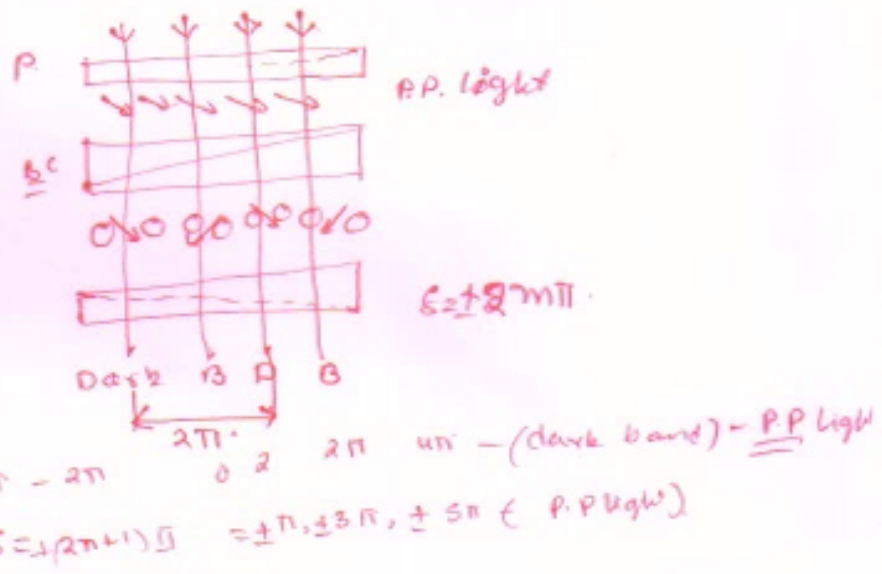 P.
P.P. light
BC
δ=±2mπ.
Dark B D B
2π.
- 2π 0 2 2π 4π - (dark band) - P.P light
δ=±(2n+1)π = ±π, ±3π, ± 5π ( P.P light)